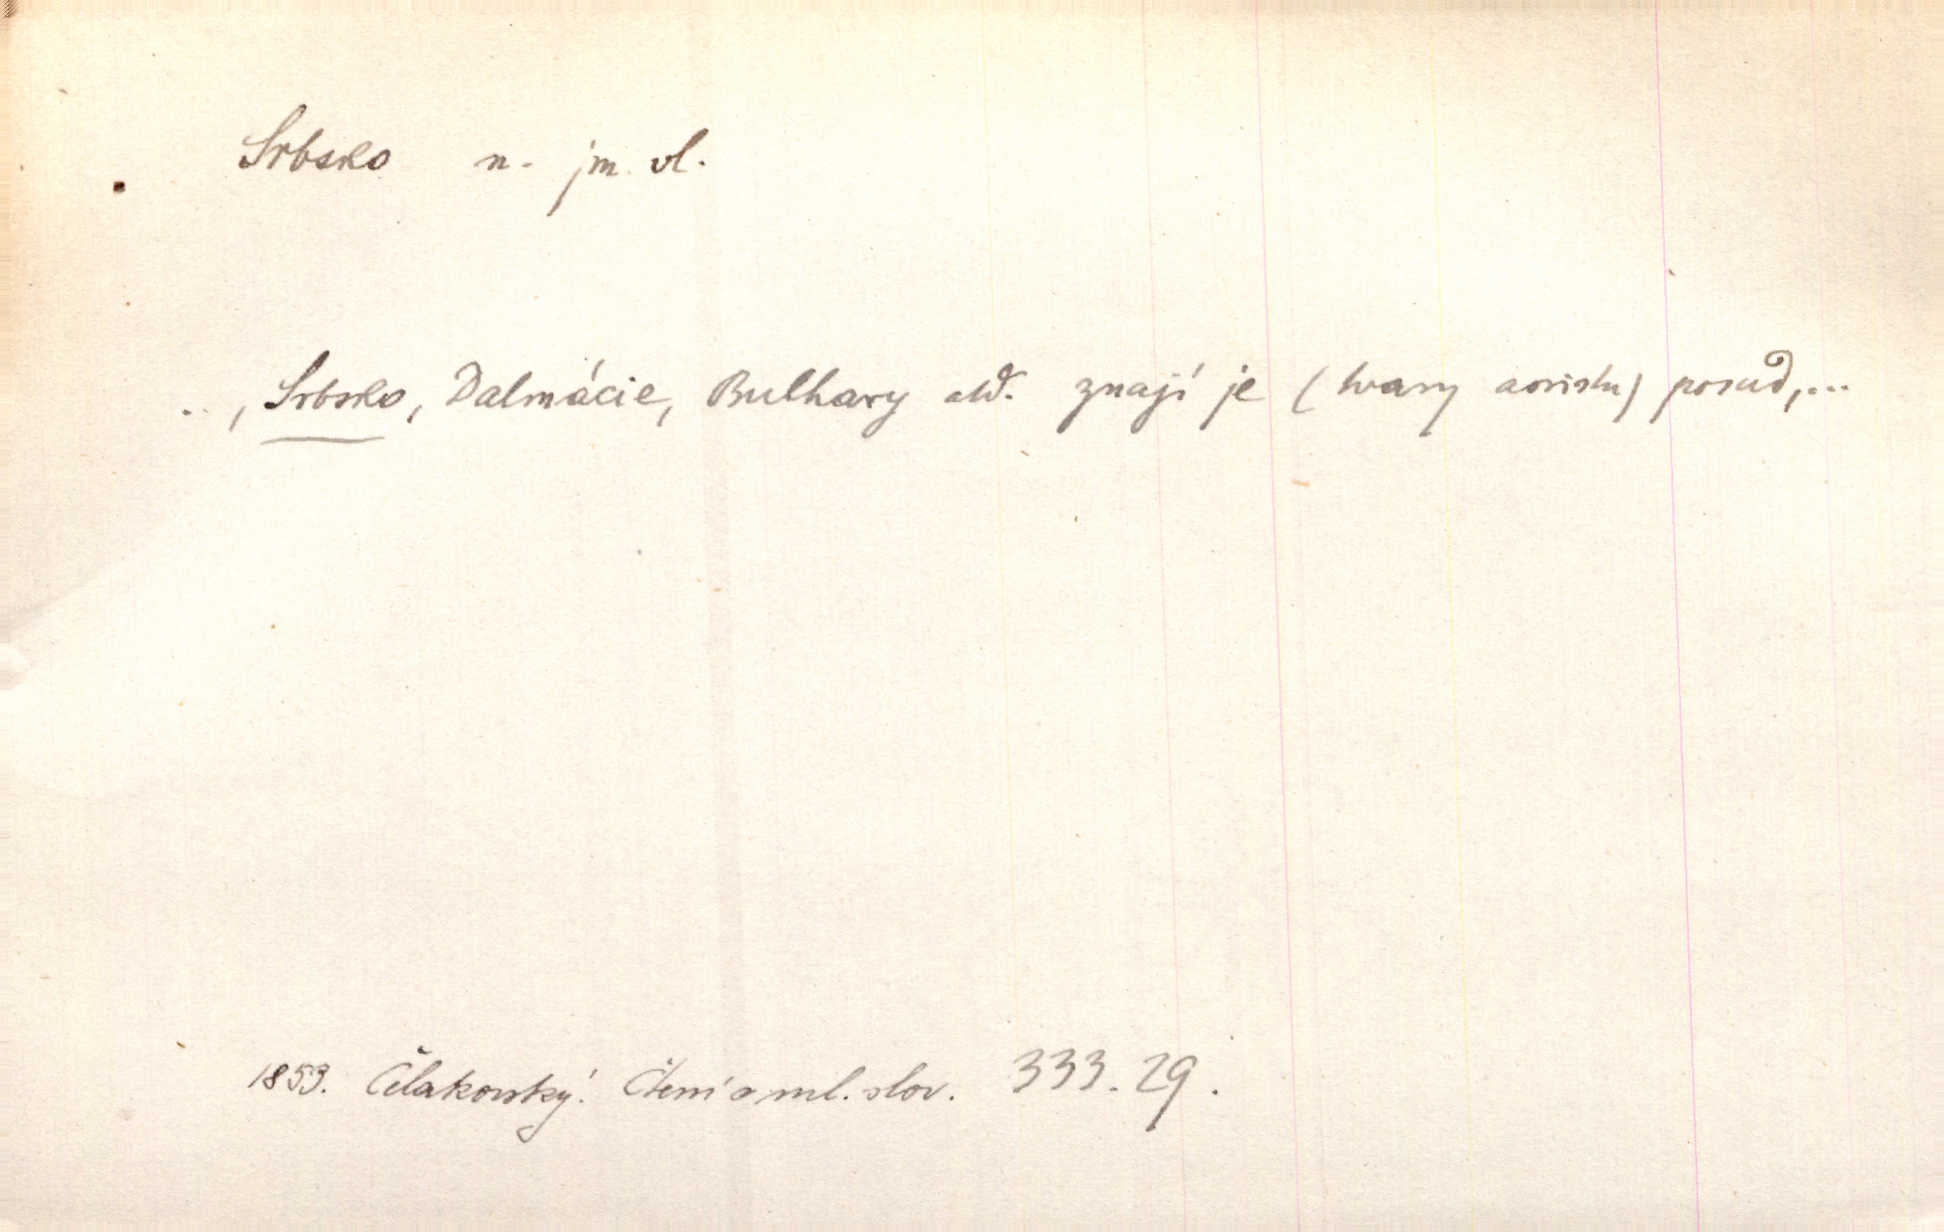 Srbsko n. jm. vl.
.., Srbsko, Dalmácie, Bulhary atd. znají je (tvary aoristu) posud,...
1853. Čelakovský: Čtení o ml. slov. 333.29.